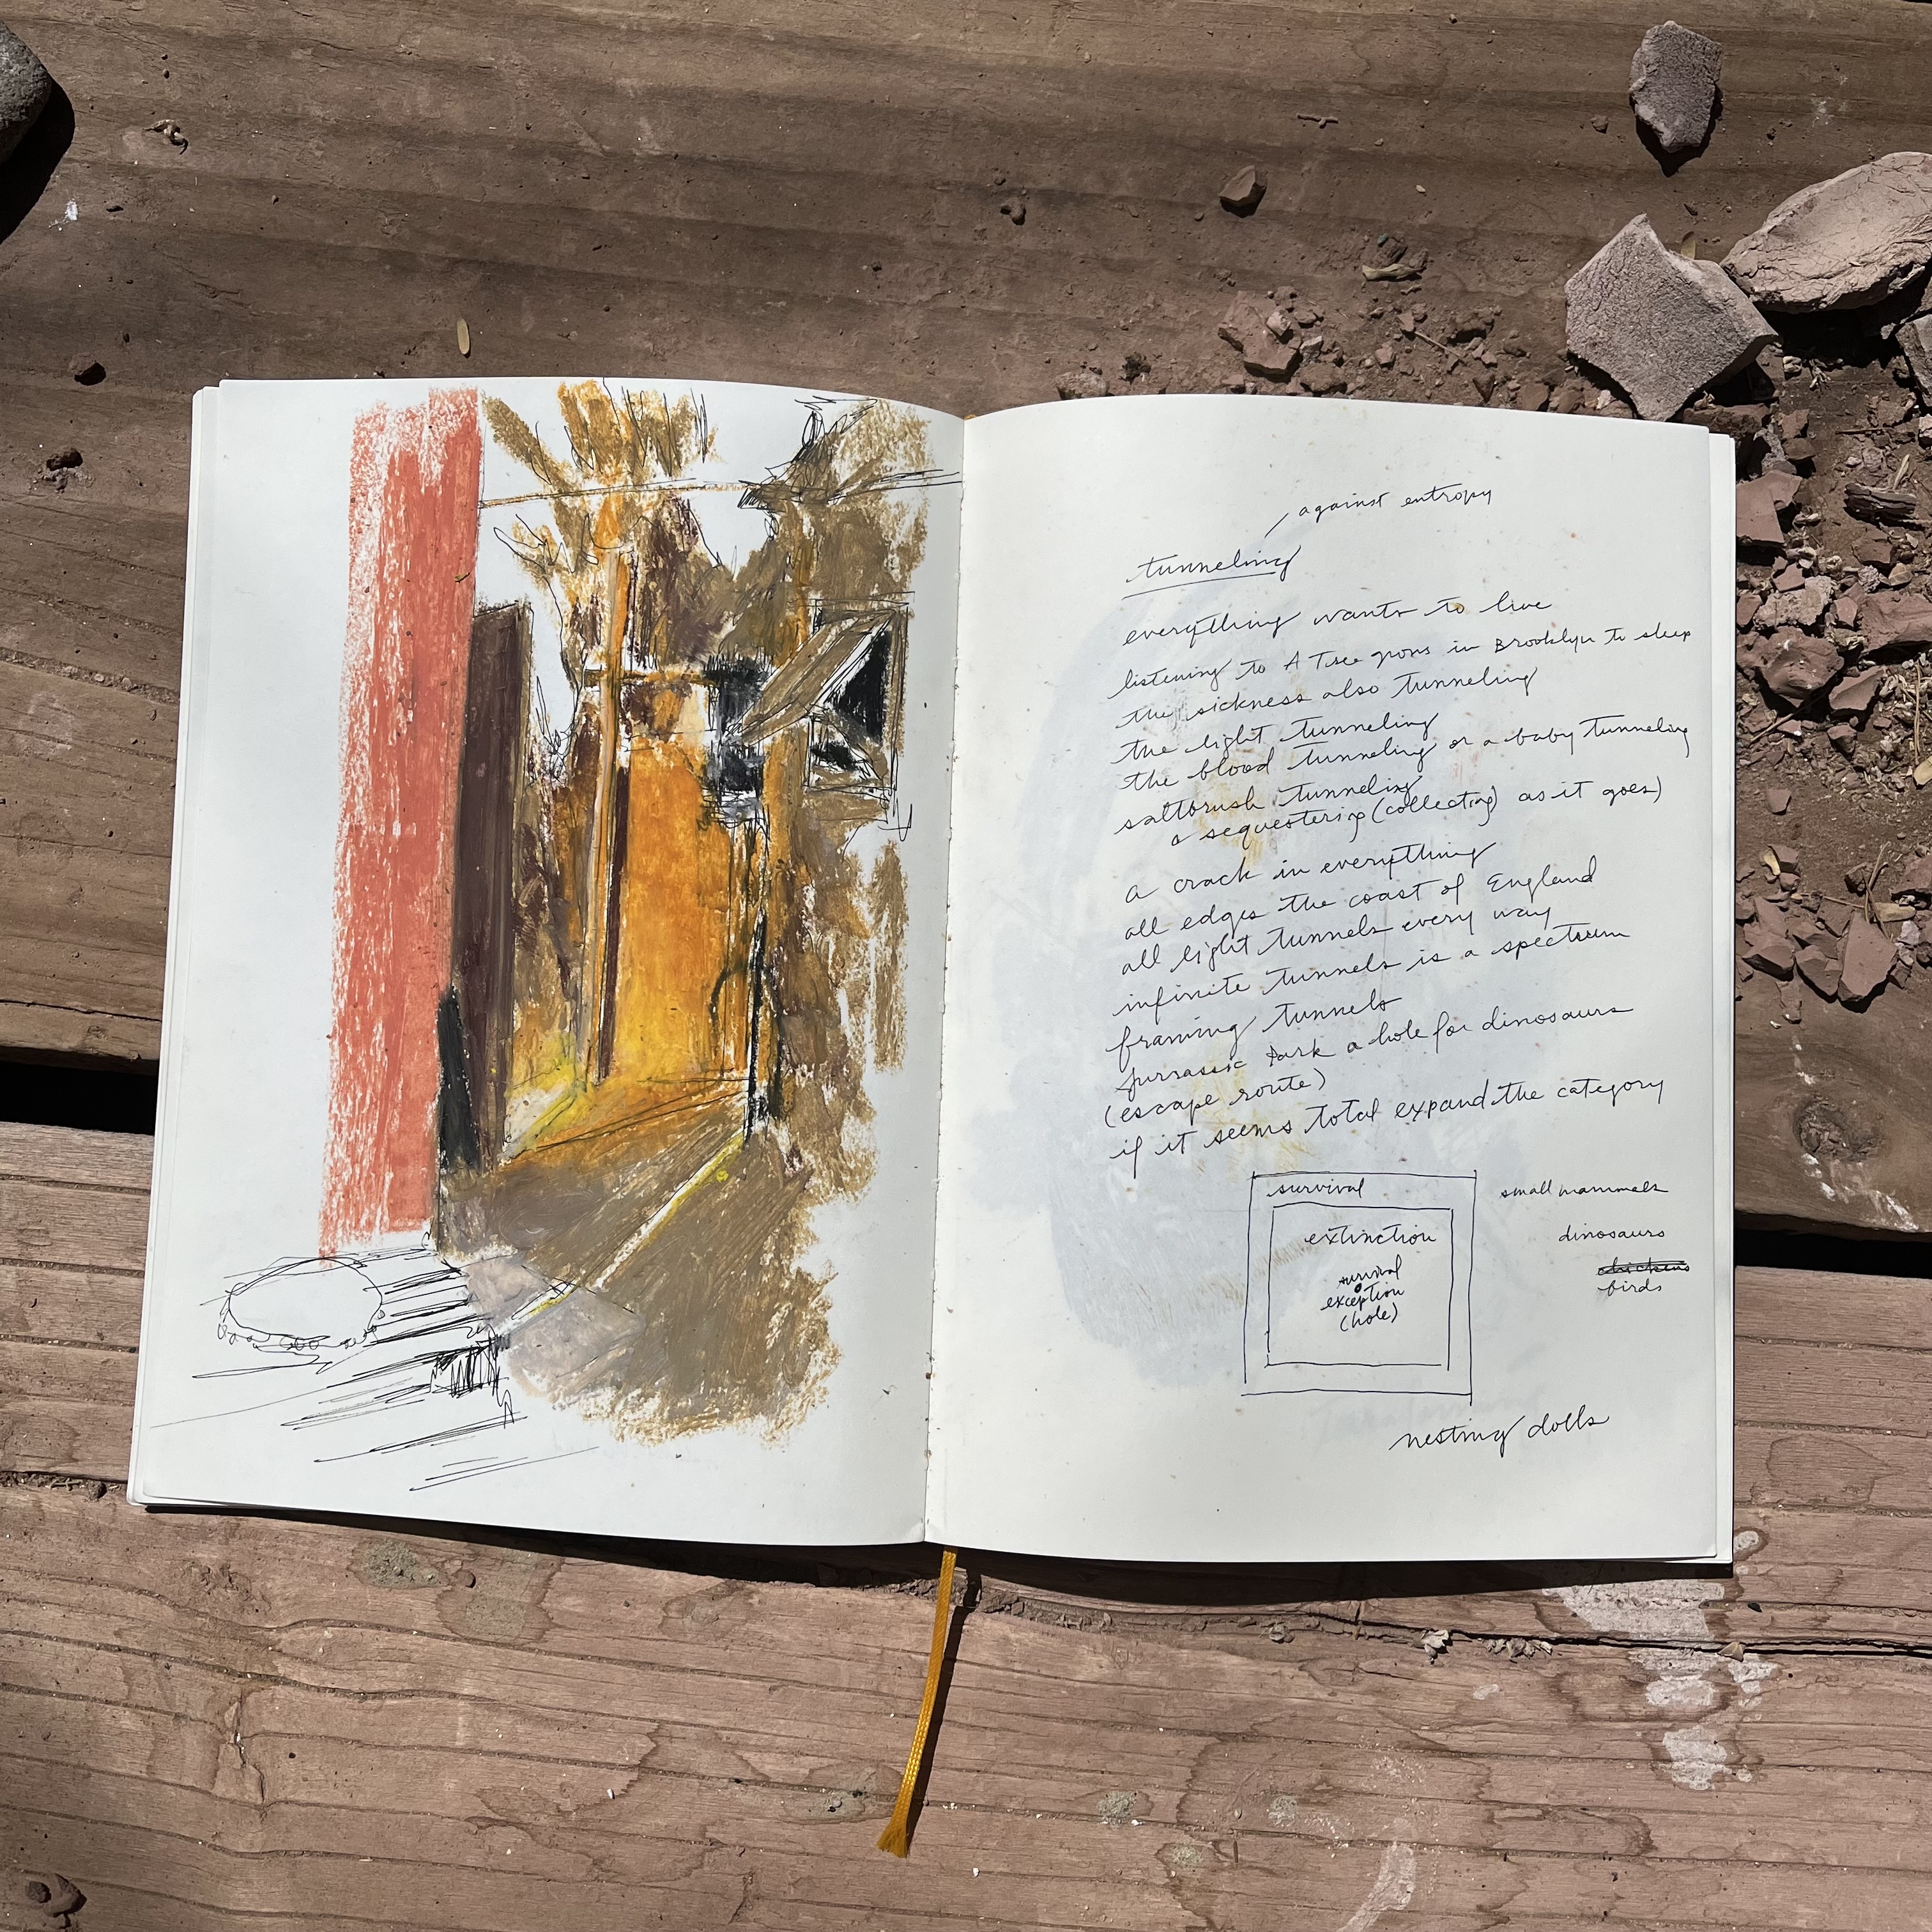 against entropy
tunneling
everything wants to live
listening to A Tree grows in Brooklyn to sleep
the sickness also tunneling
the light tunneling
the blood tunneling or a baby tunneling
saltbrush tunneling
a sequestering (collecting) as it goes)
a crack in everything
all edges the coast of England
all light tunnels every way
infinite tunnels is a spectrum
framing tunnels
jurrassic park a hole for dinosaurs
(escape route)
if it seems total expand the category
survival
small mammals
extinction
dinosaurs
survival
exception
(hole)
chickens
birds
nesting dolls